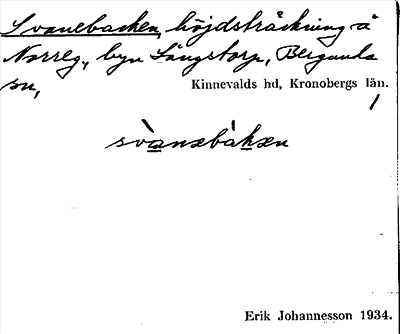 Svanebacken, höjdsträckning å
Norreg., byn Långstorp, Bergunda
sn,
Kinnevalds hd, Kronobergs län.
/
svanebaken
Erik Johannesson 1934.